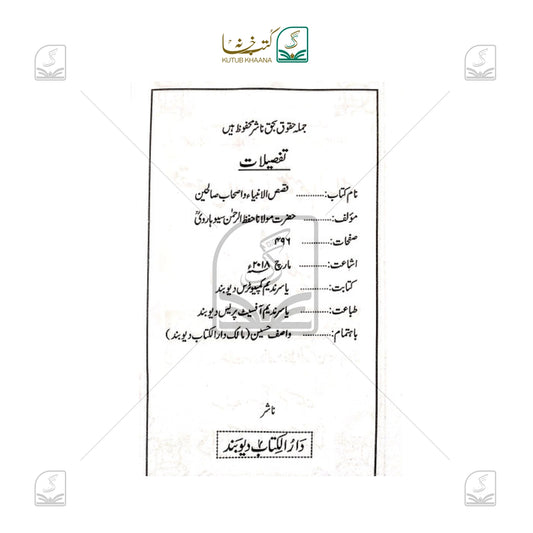 کتب خانہ
KUTUB KHAANA
جملہ حقوق بحق ناشر محفوظ ہیں
تفصیلات
نام کتاب:............ قصص الانبیاء و اصحاب صالحین
مؤلف:............ حضرت مولانا حفظ الرحمٰن سیوہارویؒ
صفحات:............ ۴۹۶
اشاعت:............ مارچ ۲۰۱۸ء
کتابت:............ یاسر ندیم کمپیوٹرس دیوبند
طباعت:............ یاسر ندیم آفسیٹ پریس دیوبند
باہتمام:............ واصف حسین (مالک دار الکتاب دیوبند)
ناشر
دَارُ الکِتَاب دیوبَند